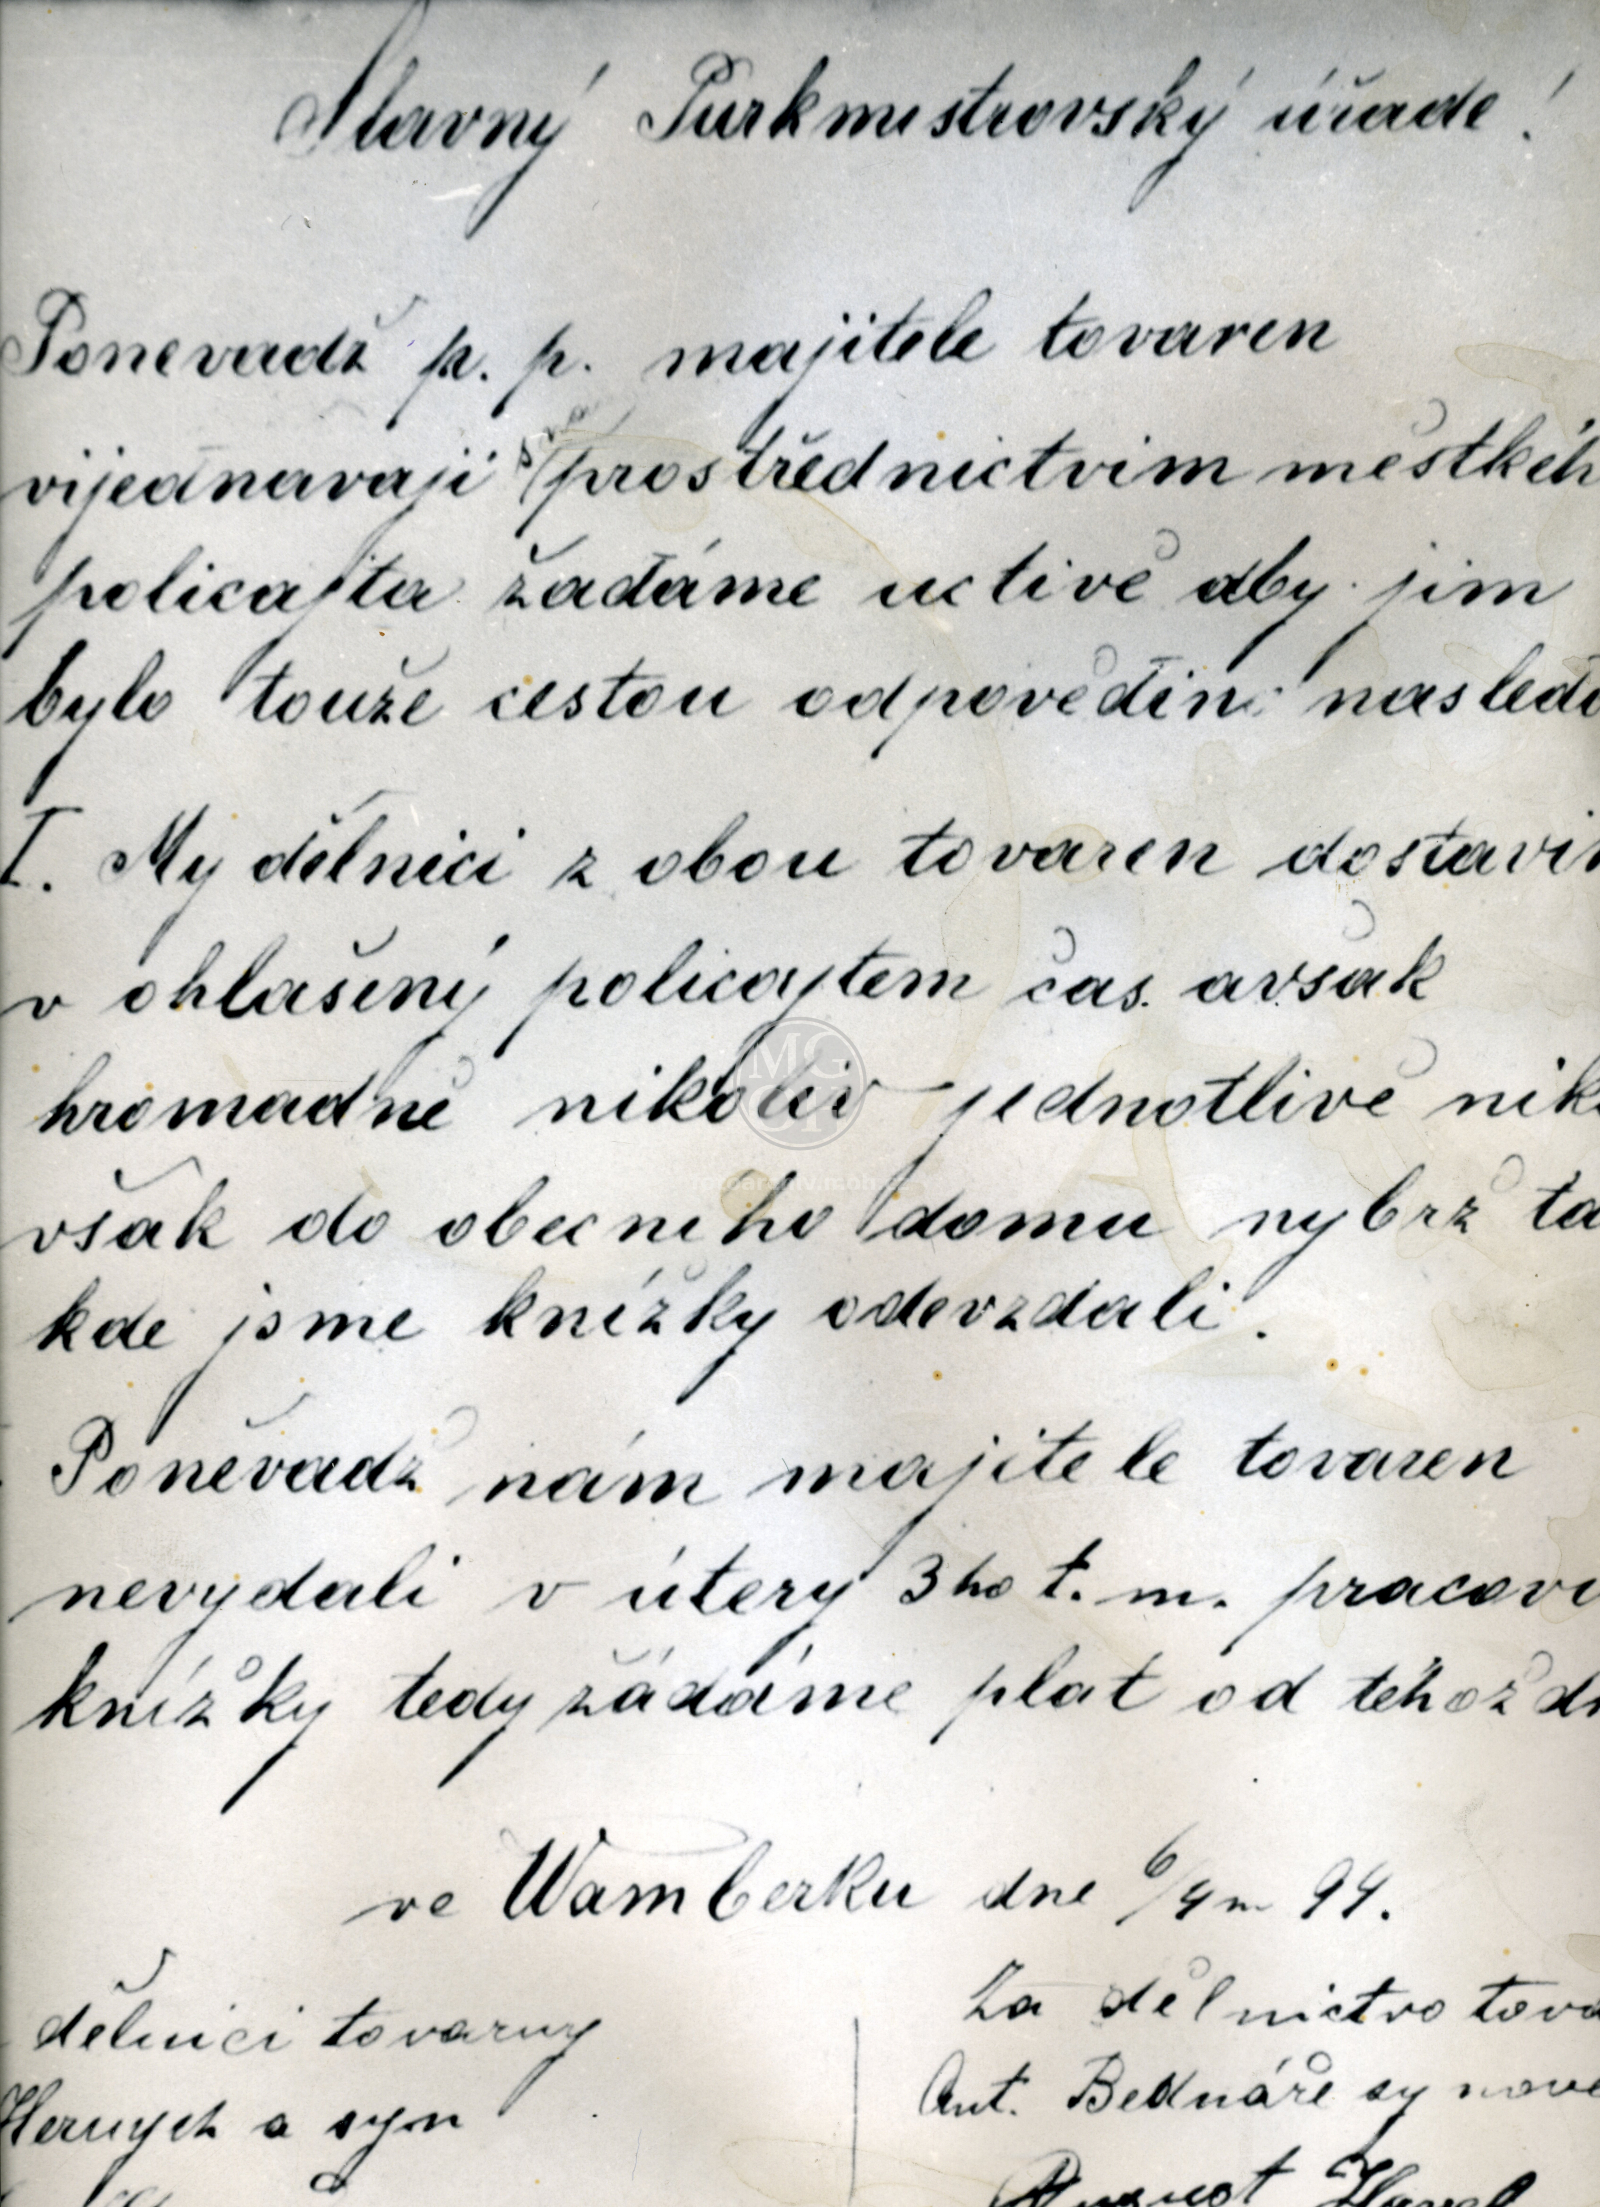 Slavný Purkmistrovský úřade!
Ponevadž p. p. majitele tovaren
vijednavaji s nami prostřednictvim městkéh
policajta žadáme uctivě aby jim
bylo touže cestou odpověďěno nasledo
I. My dělnici z obou tovaren dostavim
v ohlašený policajtem čas. avšak
hromadně nikoliv jednotlivě nik
však do obecního domu nybrž ta
kde jsme knížky odevzdali.
Poněvadž nám majitele tovaren
nevydali v útery 3ho t. m. pracovn
knížky tedy žádáme plat od téhož dn
ve Wamberku dne 6/4 m 94.
dělnici tovarny
Hernych a syn
Za dělnictvo tova
Ant. Bednáře synove
August Havel